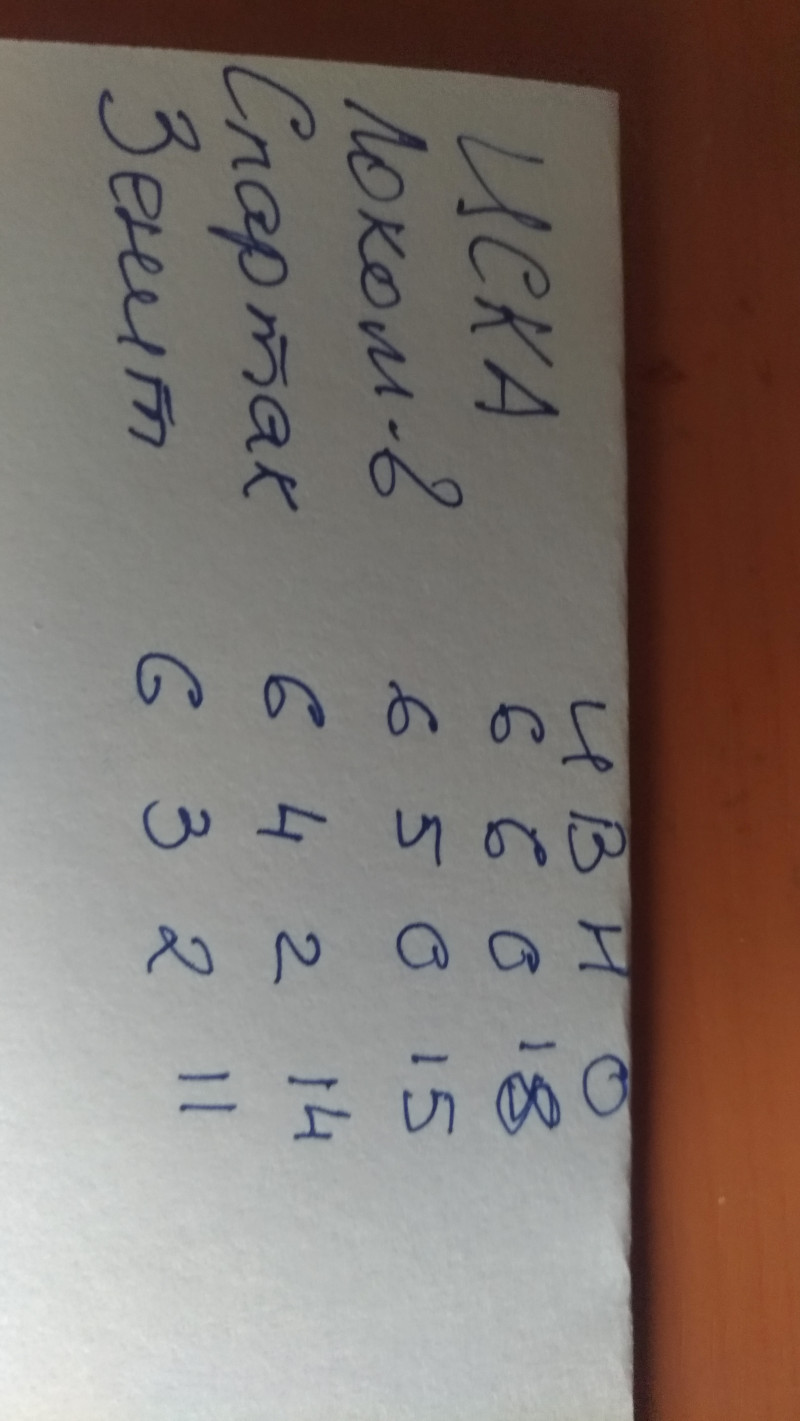 И В Н О
ЦСКА 6 6 0 18
Локом-в 6 5 0 15
Спартак 6 4 2 14
Зенит 6 3 2 11